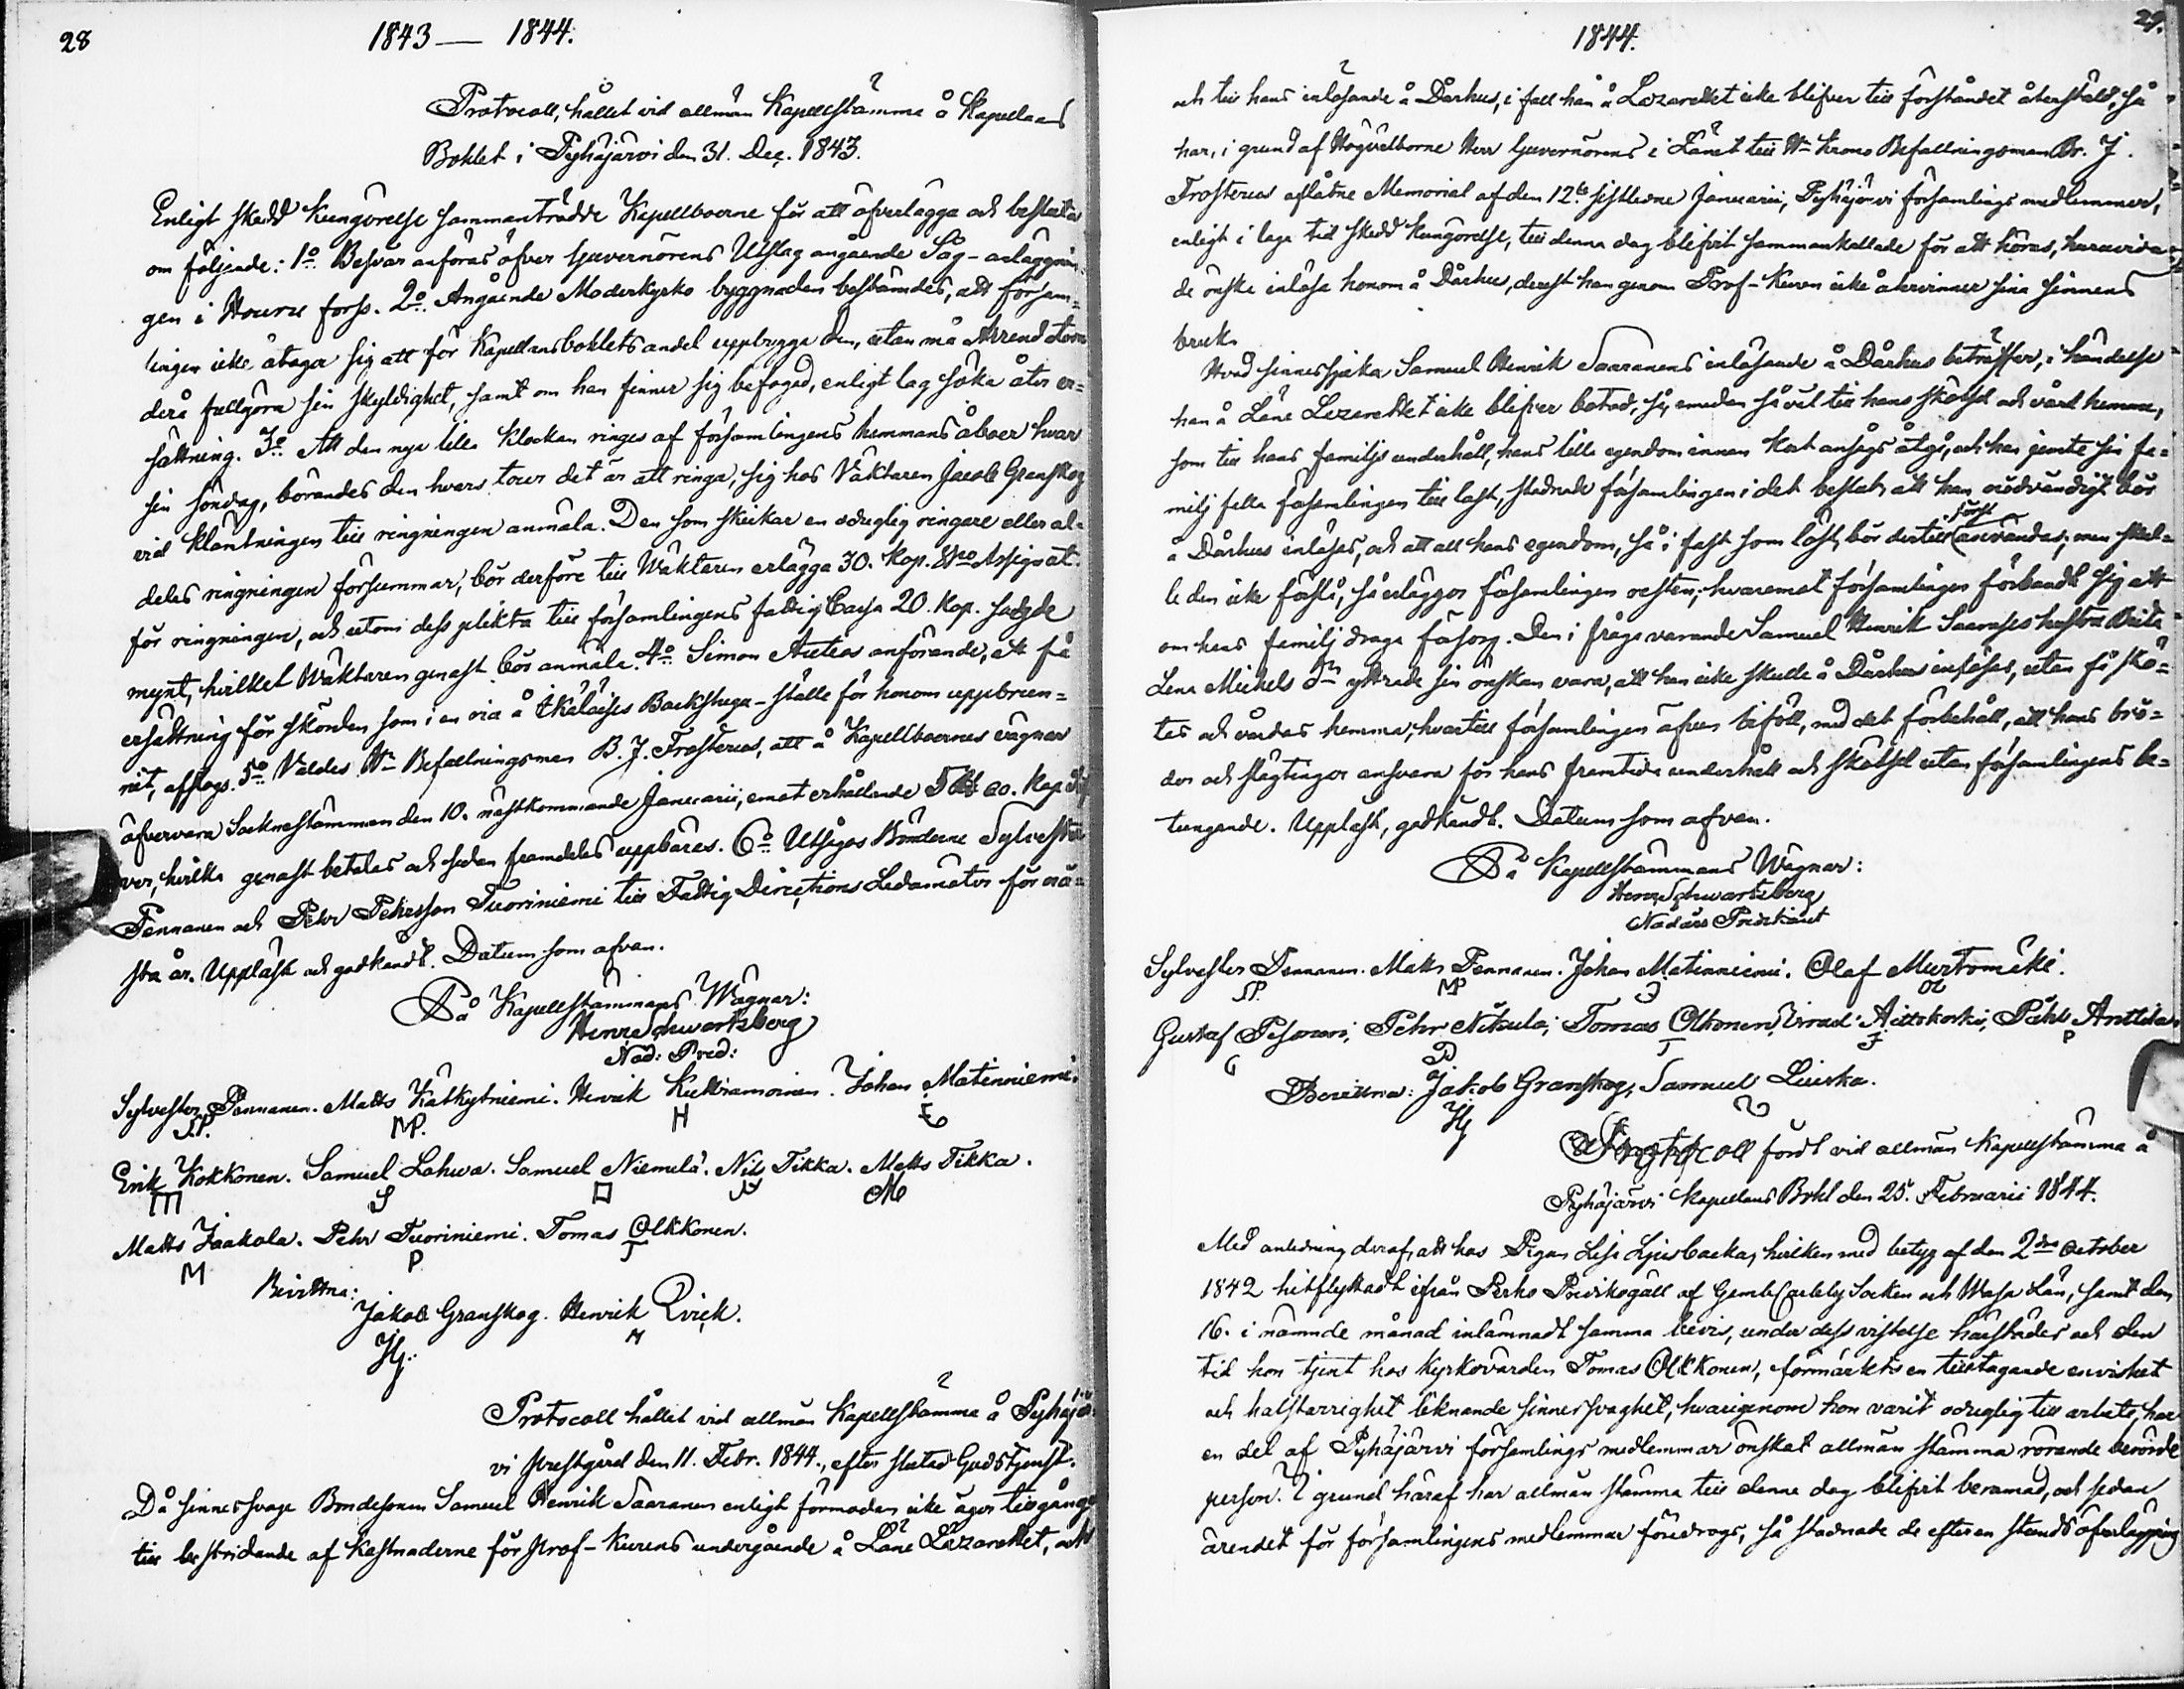 28
1843 — 1844.
Protocoll, hållet vid allmän Kapellstämma å Kapellans
Bohlet i Pyhäjärvi den 31. Dec. 1843.
Enligt skedd Kungörelse sammanträdde Kapellboerne för att öfverlägga och besluta
om följande: 1o Besvär anföras öfver Guvernörens Utslag angående Såg-anläggnin-
gen i Houru fors. 2o Angående Moderkyrko byggnaden bestämdes, att försam-
lingen icke åtager sig att för Kapellansbohlets andel uppbygga den, utan må Arrendatorn
derå fullgöra sin skyldighet, samt om han finner sig befogad, enligt lag söka åter er-
sättning. 3o Att den nya lilla Klockan ringes af församlingens hemmans åboer hvar
sin söndag, börandes den hvars tour det är att ringa, sig hos Väktaren Jacob Granskog
vid klämtningen till ringningen anmäla. Den som skickar en oduglig ringare eller al-
deles ringningen försummar, bör derföre till Wäktaren erlägga 30. Kop. Bko Assignat.
för ringningen, och utom dess plikta till församlingens fattig Cassa 20. Kop. sagde
mynt, hvilket Wäktaren genast bör anmäla. 4o Simon Anttos anförande, att få
ersättning för skörden som i en ria å Ikäläises Backstuga-ställe för honom uppbrun-
nit, afslogs. 5o Valdes Hr Befallningsman B. J. Frosterus, att å Kapellboernes vägnar
öfvervara Socknestämman den 10. nästkommande Januarii, emot erhållande 5 Rub. 20. Kop. Sil-
ver, hvilka genast betalas och sedan framdeles uppbäras. 6o Utsågos Bönderne Sylvester
Pennanen och Pehr Pehrsson Tuoriniemi till Fattig Directions Ledamöter för nä-
sta år. Uppläst och godkändt. Datum som ofvan.
På Kapellstämmans Wägnar:
Henr. Schwartzberg
Nåd: Pred:
Sylvester Pennanen. Matts Kätkytniemi. Henrik Kukkamoinen. Johan Matinniemi.
S.P. MP. H
Erik Kokkonen. Samuel Lahwa. Samuel Niemelä. Nils Tikka. Matts Tikka.
m S N M
Matts Jaakola. Pehr Tuoriniemi. Tomas Olkkonen.
M P T
Bevittna:
Jakob Granskog. Henrik Qvick.
JG. H
Protocoll hållet vid allmän Kapellstämma å Pyhäjär-
vi Prestgård den 11. Febr. 1844., efter slutad Gudstjenst.
Då sinnessvage Bondesonen Samuel Henrik Saaranen enligt förmodan icke äger tillgånge
till bestridande af kostnaderne för prof-kurens undergående å Läne Lazarettet, och
29.
1844.
och till hans inlösande å Dårhus, i fall han å Lazarettet icke blifver till förståndet återstäld, så
har, i grund af Högvälborne Herr Guvernörens i Länet till Hr Krono Befallningsman Br. J.
Frosterus aflåtne Memorial af den 12te sistledne Januarii, Pyhäjärvi församlings medlemmar,
enligt i laga tid skedd Kungörelse, till denna dag blifvit sammankallade för att höras, huruvida
de önska inlösa honom å Dårhus, derest han genom Prof-Kuren icke återvinner sina sinnens
bruk.
Hvad sinnessjuka Samuel Henrik Saaranens inlösande å Dårhus beträffar, i händelse
han å Läne Lazarettet icke blifver botad, så, emedan såväl till hans skötsel och vård hemma,
som till hans familjs underhåll, hans lilla egendom innan kort ansågs åtgå, och han jemte sin fa-
milj falla församlingen till last, stadnade församlingen i det beslut, att han nödvändigt bör
å Dårhus inlösas, och att all hans egendom, så i fast som löst, bör dertill först användas; men skul-
le den icke förslå, så erlägger församlingen resten, hvaremot församlingen förbandt sig att
om hans familj draga försorg. Den i fråga varande Samuel Henrik Saarases hustru Brita
Lena Mickels Dr yttrade sin önskan vara, att han icke skulle å Dårhus inlösas, utan få skö-
tas och vårdas hemma; hvartill församlingen äfven biföll, med det förbehåll, att hans brö-
der och slägtingar ansvara för hans framtida underhåll och skötsel utan församlingens be-
tungande. Uppläst, godkändt. Datum som ofvan.
På Kapellstämmans Wägnar:
Henr. Schwartzberg
Nådårs Predikant
Sylvester Pennanen. Matts Pennanen. Johan Matinniemi. Olaf Murtomäki.
SP. MP J OL
Gustaf Pesonen, Pehr Nikula, Tomas Olkonen, Conrad Aittokoski, Påhl Anttila
G P T J P
Bevittna: Jakob Granskog, Samuel Luiska.
JG
Protocoll fördt vid allmän Kapellstämma å
Pyhäjärvi Kapellans Bohl den 25. Februarii 1844.
Med anledning deraf, att hos Pigan Lisa Ljusbacka, hvilken med betyg af den 2dra October
1842 hitflyttadt ifrån Perho Predikogäll af Gamle Carleby Socken och Wasa Län, samt den
16. i nämnde månad inlämnadt samma bevis, under dess vistelse härstädes och den
tid hon tjent hos kyrkovärden Tomas Olkkonen, förmärkts en tilltagande envishet
och halsstarrighet liknande sinnessvaghet, hvarigenom hon varit oduglig till arbete, har
en del af Pyhäjärvi församlings medlemmar önskat allmän stämma rörande berörde
person. I grund häraf har allmän stämma till denna dag blifvit beramad, och sedan
ärendet för församlingens medlemmar föredrogs, så stadnade de efter en stunds öfverläggning